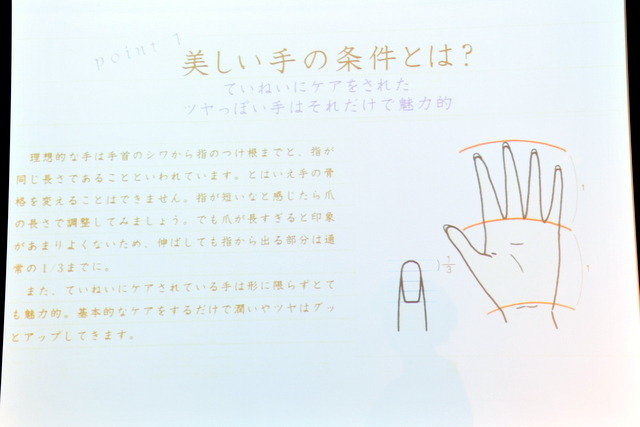 point 1
美しい手の条件とは?
ていねいにケアをされた
ツヤっぽい手はそれだけで魅力的
理想的な手は手首のシワから指のつけ根までと、指が
同じ長さであることといわれています。とはいえ手の骨
格を変えることはできません。指が短いなと感じたら爪
の長さで調整してみましょう。でも爪が長すぎると印象
があまりよくないため、伸ばしても指から出る部分は通
常の1/3までに。
また、ていねいにケアされている手は形に限らずとて
も魅力的。基本的なケアをするだけで潤いやツヤはグッ
とアップしてきます。
1
1/3
1